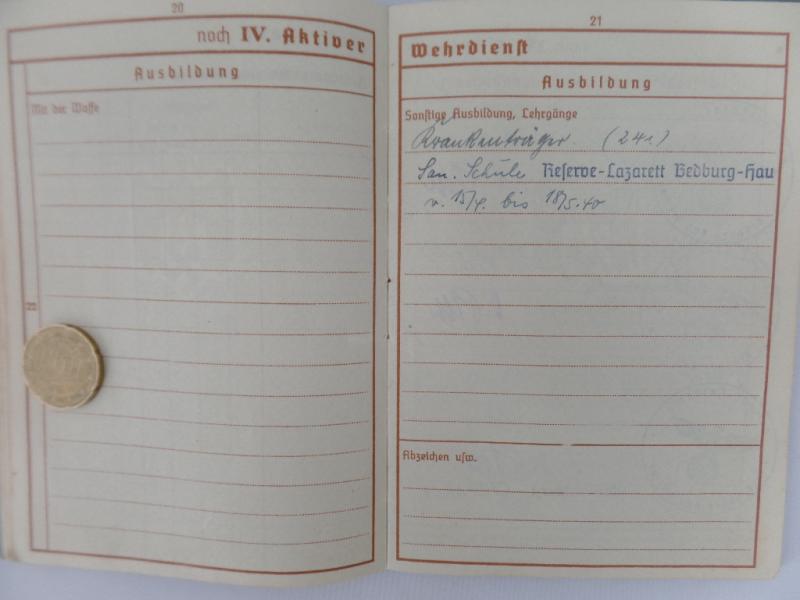 20
noch IV. Aktiver
Ausbildung
Mit der Waffe
22
21
Wehrdienst
Ausbildung
Sonstige Ausbildung, Lehrgänge
Krankenträger. (241)
San. Schule Reserve-Lazarett Bedburg-Hau
v. 15/4. bis 18/5.40
Abzeichen usw.